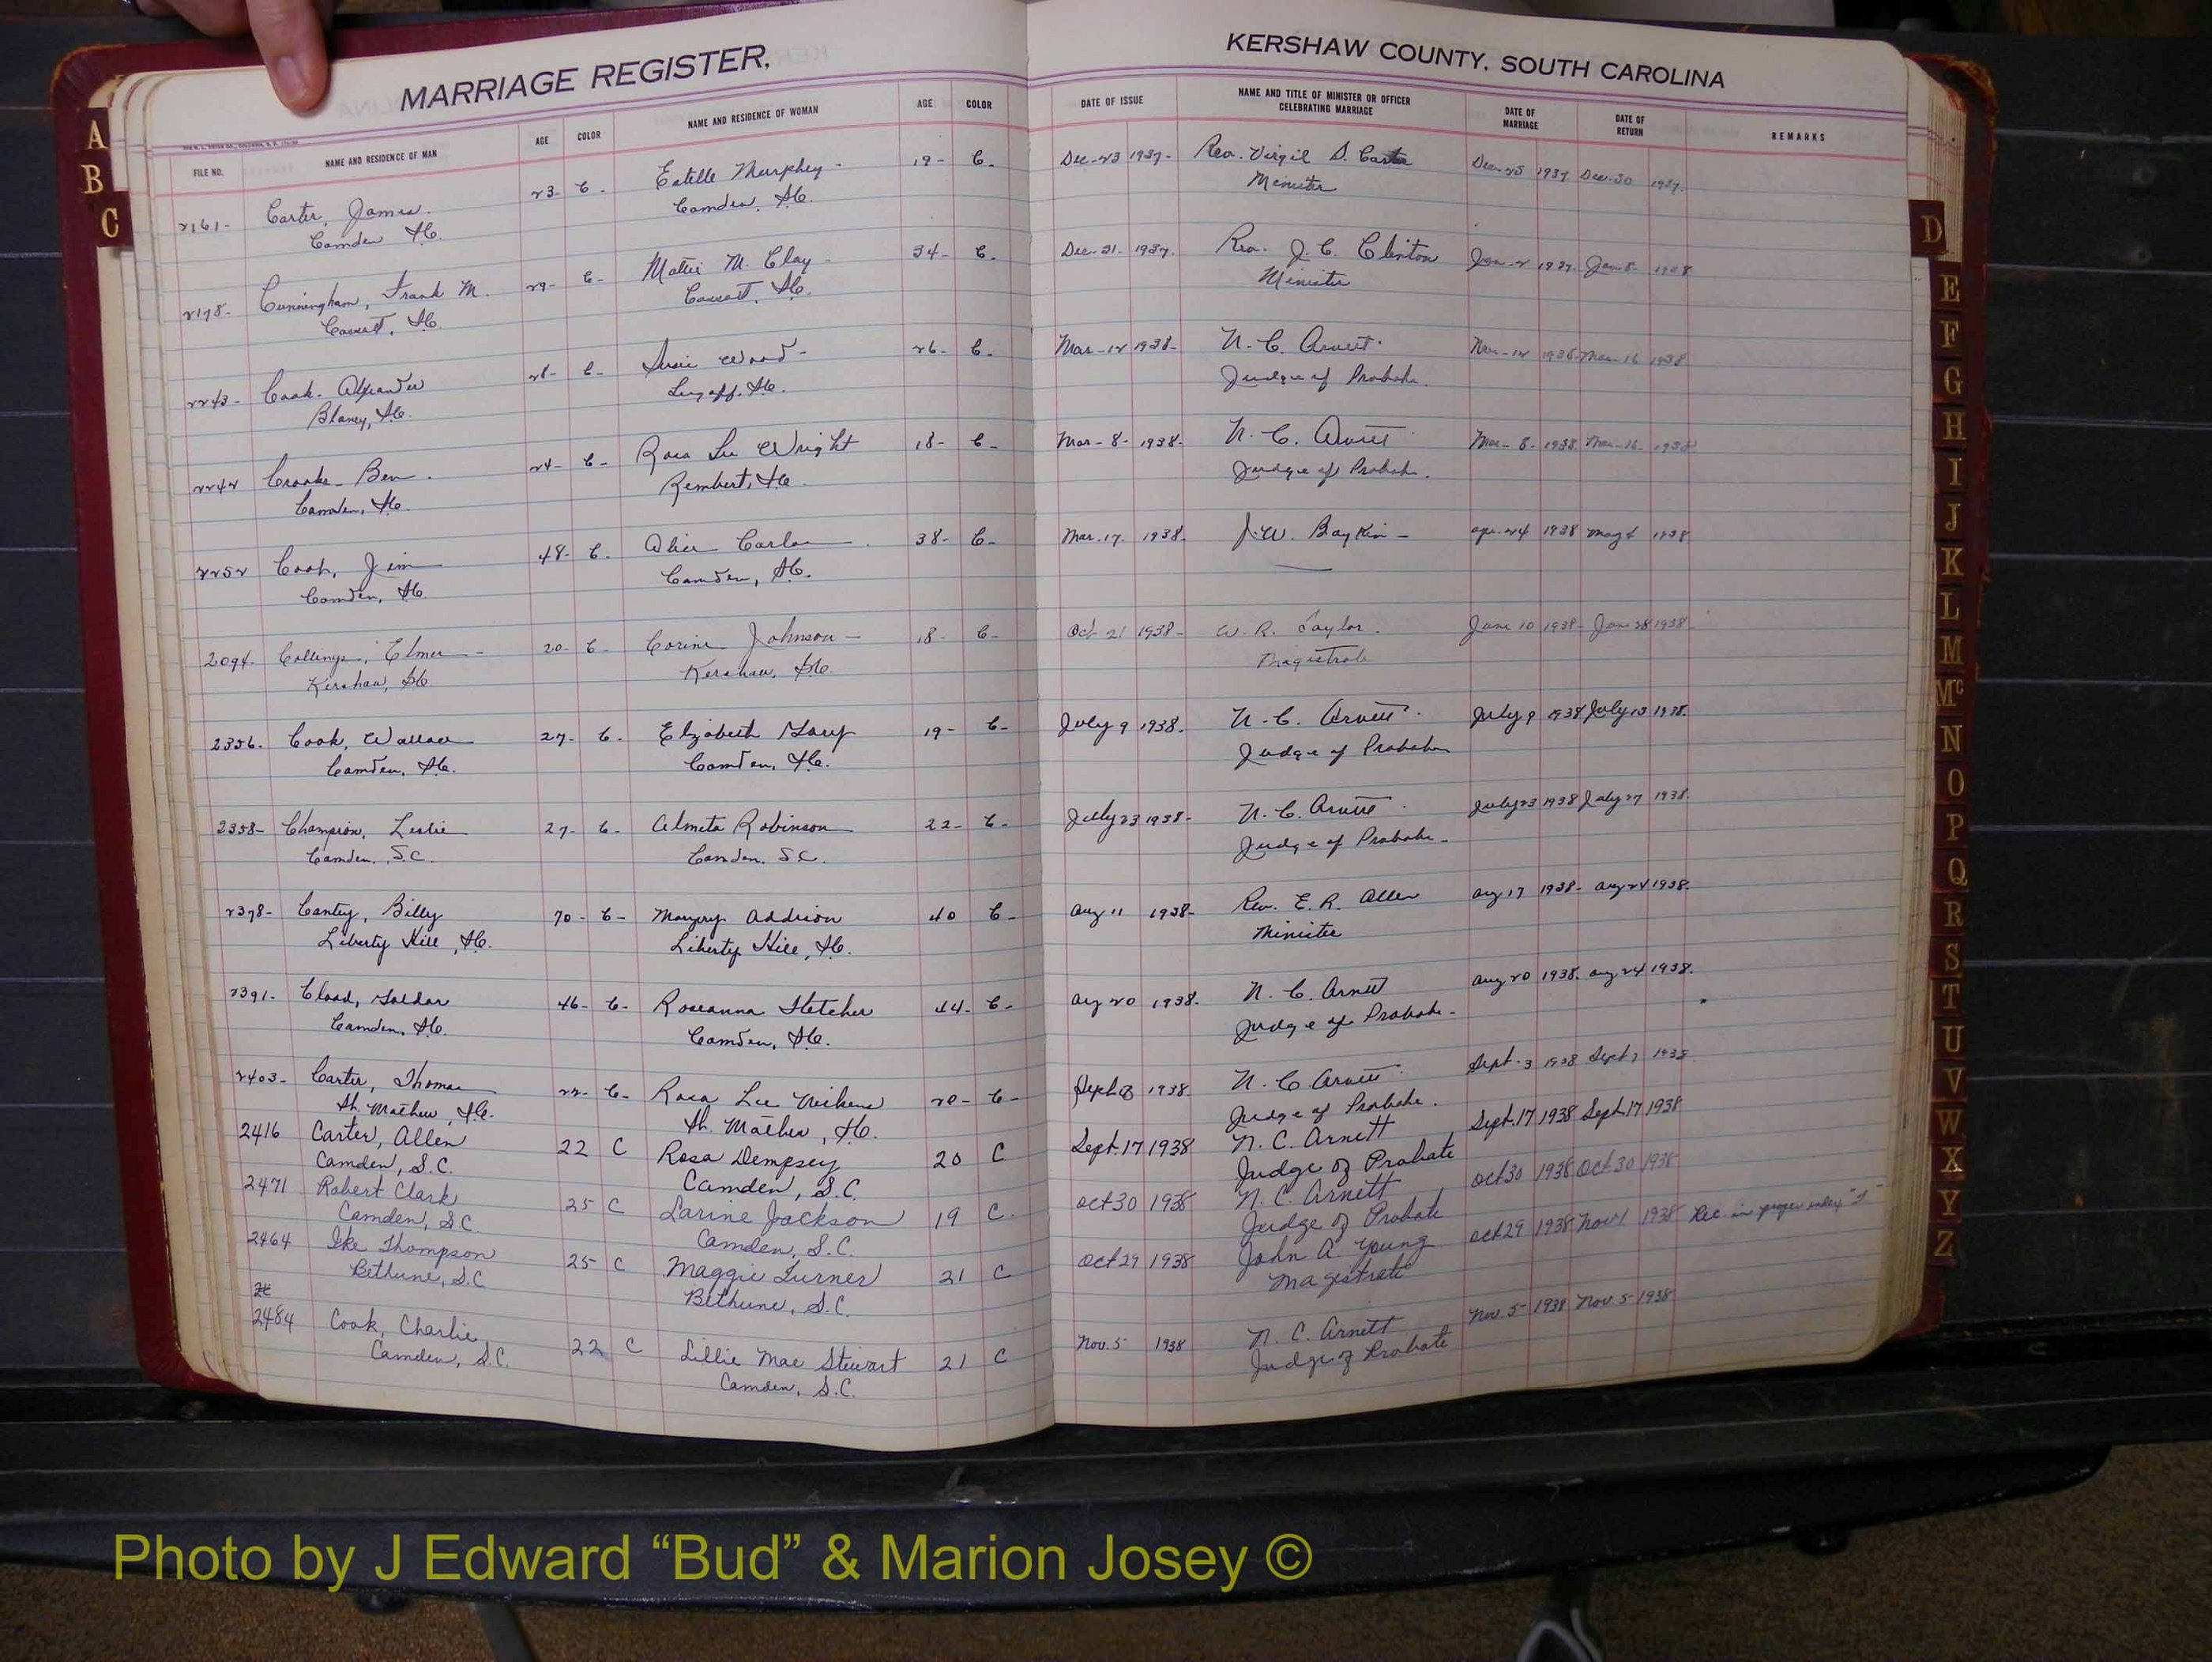 MARRIAGE REGISTER,
KERSHAW COUNTY, SOUTH CAROLINA
FILE NO. NAME AND RESIDENCE OF MAN AGE COLOR NAME AND RESIDENCE OF WOMAN AGE COLOR DATE OF ISSUE NAME AND TITLE OF MINISTER OR OFFICER CELEBRATING MARRIAGE DATE OF MARRIAGE DATE OF RETURN REMARKS
2161- Carter, James. 23- C- Estelle Murphey- 19- C- Dec-23 1937- Rev. Virgil D. Carter Dec-25 1937. Dec-30 1937.
Camden S.C. Camden, S.C. Minister
2178- Cunningham, Frank M. 29- C- Mattie M. Clay- 34- C. Dec-31- 1937. Rev. J. C. Clinton Jan-2 1937. Jan 5- 1938
Cassatt, S.C. Cassatt, S.C. Minister
2243- Cook- Alexander 28- C- Susie Wood- 26- C. Mar-12 1938- N. C. Arnett. Mar-12 1938- Mar-16 1938
Blaney, S.C. Lugoff, S.C. Judge of Probate.
2242 Crooks- Ben. 24- C- Rosa Lee Wright 18- C- Mar-8- 1938- N. C. Arnett Mar-8- 1938. Mar-16- 1938
Camden, S.C. Rembert, S.C. Judge of Probate.
2252 Cook, Jim 48- C. Alice 38- C- Mar. 17. 1938. J. W. Boykin- Apr-24 1938 May 4 1938
Camden, S.C. Camden, S.C.
2094- Collings, Elmer- 20- C- Corine Johnson- 18- C- Oct 21 1938- W. R. Taylor. June 10 1938- June 28 1938
Kershaw, S.C. Kershaw, S.C. Magistrate
2356- Cook, Wallace 27- C- Elizabeth 19- C- July 9 1938. N. C. Arnett. July 9 1938 July 13 1938.
Camden, S.C. Camden, S.C. Judge of Probate
2358- Champion, Leslie 27- C- Almeta Robinson 22- C- July 23 1938- N. C. Arnett. July 23 1938 July 27 1938.
Camden, S.C. Camden. S.C. Judge of Probate-
2378- Canty, Billy 70- C- Margery Addrion 40 C- Aug 11 1938- Rev. E. R. Allen Aug 17 1938- Aug 24 1938.
Liberty Hill, S.C. Liberty Hill, S.C. Minister
2391- 46- C- Roseanna Fletcher 44- C- Aug 20 1938. N. C. Arnett Aug 20 1938. Aug 24 1938.
Camden, S.C. Camden, S.C. Judge of Probate-
2403- Carter, Thomas 22- C- Rosa Lee 20- C- Sept. 3 1938. N. C. Arnett. Sept-3 1938 Sept 7 1938
St. Mathew, S.C. St. Mathew, S.C. Judge of Probate.
2416 Carter, Allen 22 C Rosa Dempsey 20 C Sept. 17 1938 N. C. Arnett Sept. 17 1938 Sept. 17 1938
Camden, S.C. Camden, S.C. Judge of Probate
2471 Robert Clark 25 C Larine Jackson 19 C. Oct 30 1938 N. C. Arnett Oct 30 1938 Oct 30 1938
Camden, S.C. Camden, S.C. Judge of Probate
2464 Ike Thompson 25 C Maggie Turner 21 C Oct 29 1938 John A. Young Oct 29 1938 Nov 1 1938 Rec. in proper index "T"
Bethune, S.C Bethune, S.C. Magistrate
2484 Cook, Charlie 22 C Lillie Mae Stewart 21 C Nov. 5 1938 N. C. Arnett Nov. 5 1938 Nov. 5 1938
Camden, S.C. Camden, S.C. Judge of Probate
A
B
C
D
E
F
G
H
I
J
K
L
M
Mc
N
O
P
Q
R
S
T
U
V
W
X
Y
Z
Photo by J Edward “Bud” & Marion Josey ©